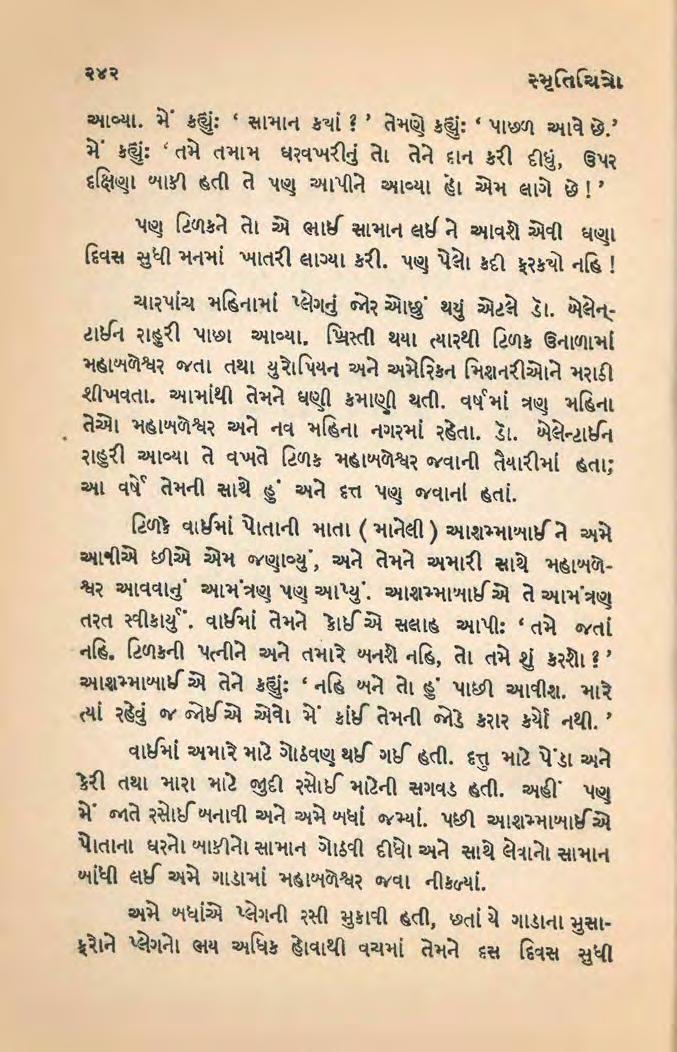 ૨૪૨
સ્મૃતિચિત્રો
આવ્યા. મેં કહ્યું: ‘ સામાન કયાં ? ’ તેમણે કહ્યું: ‘ પાછળ આવે છે.’
મેં કહ્યું: ‘ તમે તમામ ઘરવખરીનું તો તેને દાન કરી દીધું, ઉપર
દક્ષિણા બાકી હતી તે પણ આપીને આવ્યા હો એમ લાગે છે ! ’
પણ ટિળકને તો એ ભાઈ સામાન લઈ ને આવશે એવી ઘણા
દિવસ સુધી મનમાં ખાતરી લાગ્યા કરી. પણ પેલો કદી ફરકયો નહિ !
ચારપાંચ મહિનામાં પ્લેગનું જોર ઓછું થયું એટલે ડૉ. બેલેન્-
ટાઈન રાહુરી પાછા આવ્યા. ખ્રિસ્તી થયા ત્યારથી ટિળક ઉનાળામાં
મહાબળેશ્વર જતા તથા યુરોપિયન અને અમેરિકન મિશનરીઓને મરાઠી
શીખવતા. આમાંથી તેમને ઘણી કમાણી થતી. વર્ષમાં ત્રણ મહિના
તેઓ મહાબળેશ્વર અને નવ મહિના નગરમાં રહેતા. ડૉ. બેલેન્ટાઈન
રાહુરી આવ્યા તે વખતે ટિળક મહાબળેશ્વર જવાની તૈયારીમાં હતા;
આ વર્ષે તેમની સાથે હું અને દત્ત પણ જવાનાં હતાં.
ટિળકે વાઈમાં પોતાની માતા ( માનેલી ) આશમ્માબાઈ ને અમે
આવીએ છીએ એમ જણાવ્યું, અને તેમને અમારી સાથે મહાબળે-
શ્વર આવવાનું આમંત્રણ પણ આપ્યું. આશમ્માબાઈ એ તે આમંત્રણ
તરત સ્વીકાર્યું. વાઈમાં તેમને કોઈ એ સલાહ આપી: ‘ તમે જતાં
નહિ. ટિળકની પત્નીને અને તમારે બનશે નહિ, તો તમે શું કરશો ? ’
આશમ્માબાઈ એ તેને કહ્યું: ‘ નહિ બને તો હું પાછી આવીશ. મારે
ત્યાં રહેવું જ જોઈ એ એવો મેં કાંઈ તેમની જોડે કરાર કર્યો નથી. ’
વાઈમાં અમારે માટે ગોઠવણ થઈ ગઈ હતી. દત્તુ માટે પેંડા અને
કેરી તથા મારા માટે જુદી રસોઈ માટેની સગવડ હતી. અહીં પણ
મેં જાતે રસોઈ બનાવી અને અમે બધાં જમ્યાં. પછી આશમ્માબાઈ એ
પોતાના ઘરનો બાકીનો સામાન ગોઠવી દીધો અને સાથે લેવાનો સામાન
બાંધી લઈ અમે ગાડામાં મહાબળેશ્વર જવા નીકળ્યાં.
અમે બધાંએ પ્લેગની રસી મુકાવી હતી, છતાં યે ગાડાના મુસા-
ફરોને પ્લેગનો ભય અધિક હોવાથી વચમાં તેમને દસ દિવસ સુધી